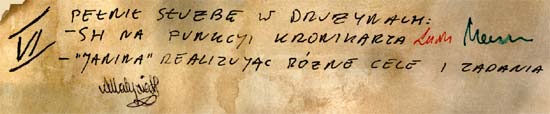 VI PEŁNIĘ SŁUŻBĘ W DRUŻYNACH:
-SH NA FUNKCJI KRONIKARZA
-"JANINA" REALIZUJĄC RÓŻNE CELE I ZADANIA